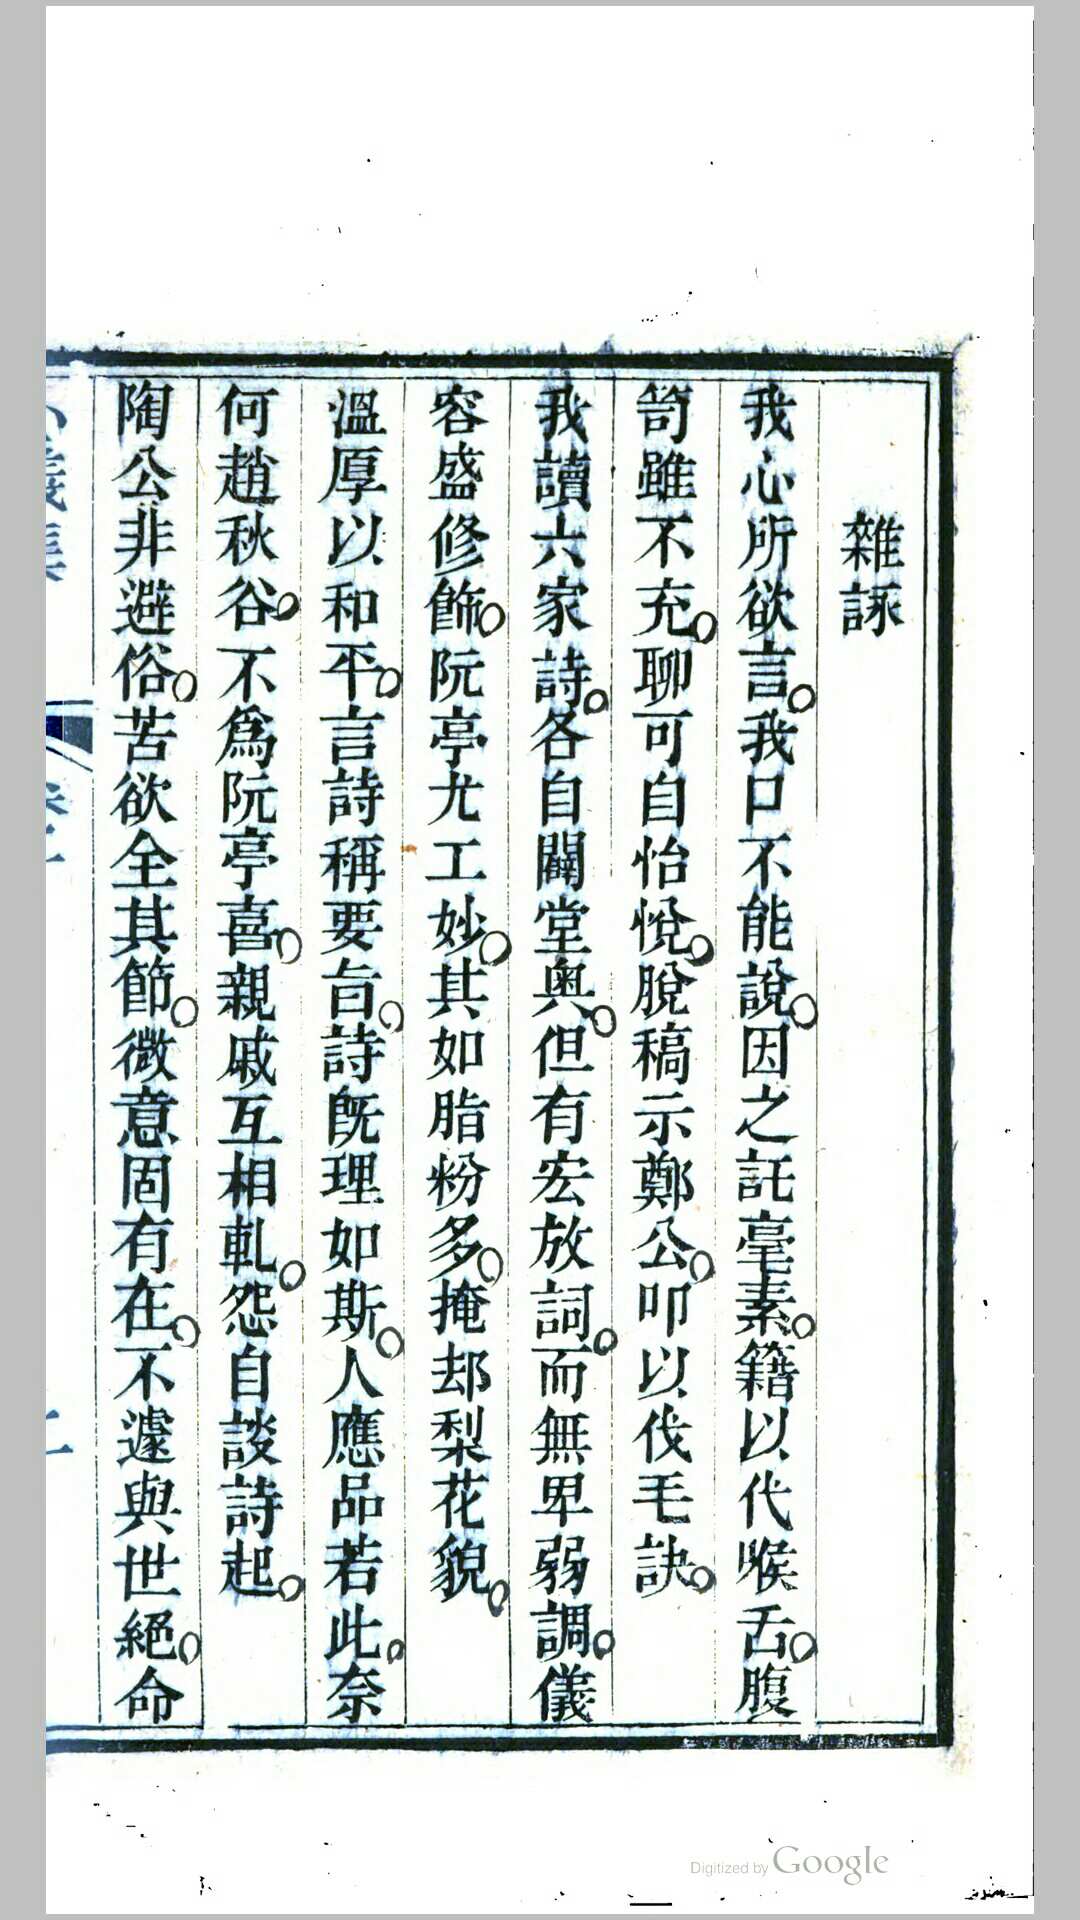 雜詠
我心所欲言。我口不能說。因之託毫素。籍以代喉舌。腹
笥雖不充。聊可自怡悅。脫稿示鄭公。叩以伐毛訣。
我讀六家詩。各自闢堂奧。但有宏放詞。而無卑弱調。儀
容盛修飾。阮亭尤工妙。其如脂粉多。掩却梨花貌。
溫厚以和平。言詩稱要旨。詩旣理如斯。人應品若此。奈
何趙秋谷。不爲阮亭喜。親戚互相軋。怨自談詩起。
陶公非避俗。苦欲全其節。微意固有在。不遽與世絕。命
Digitized by Google